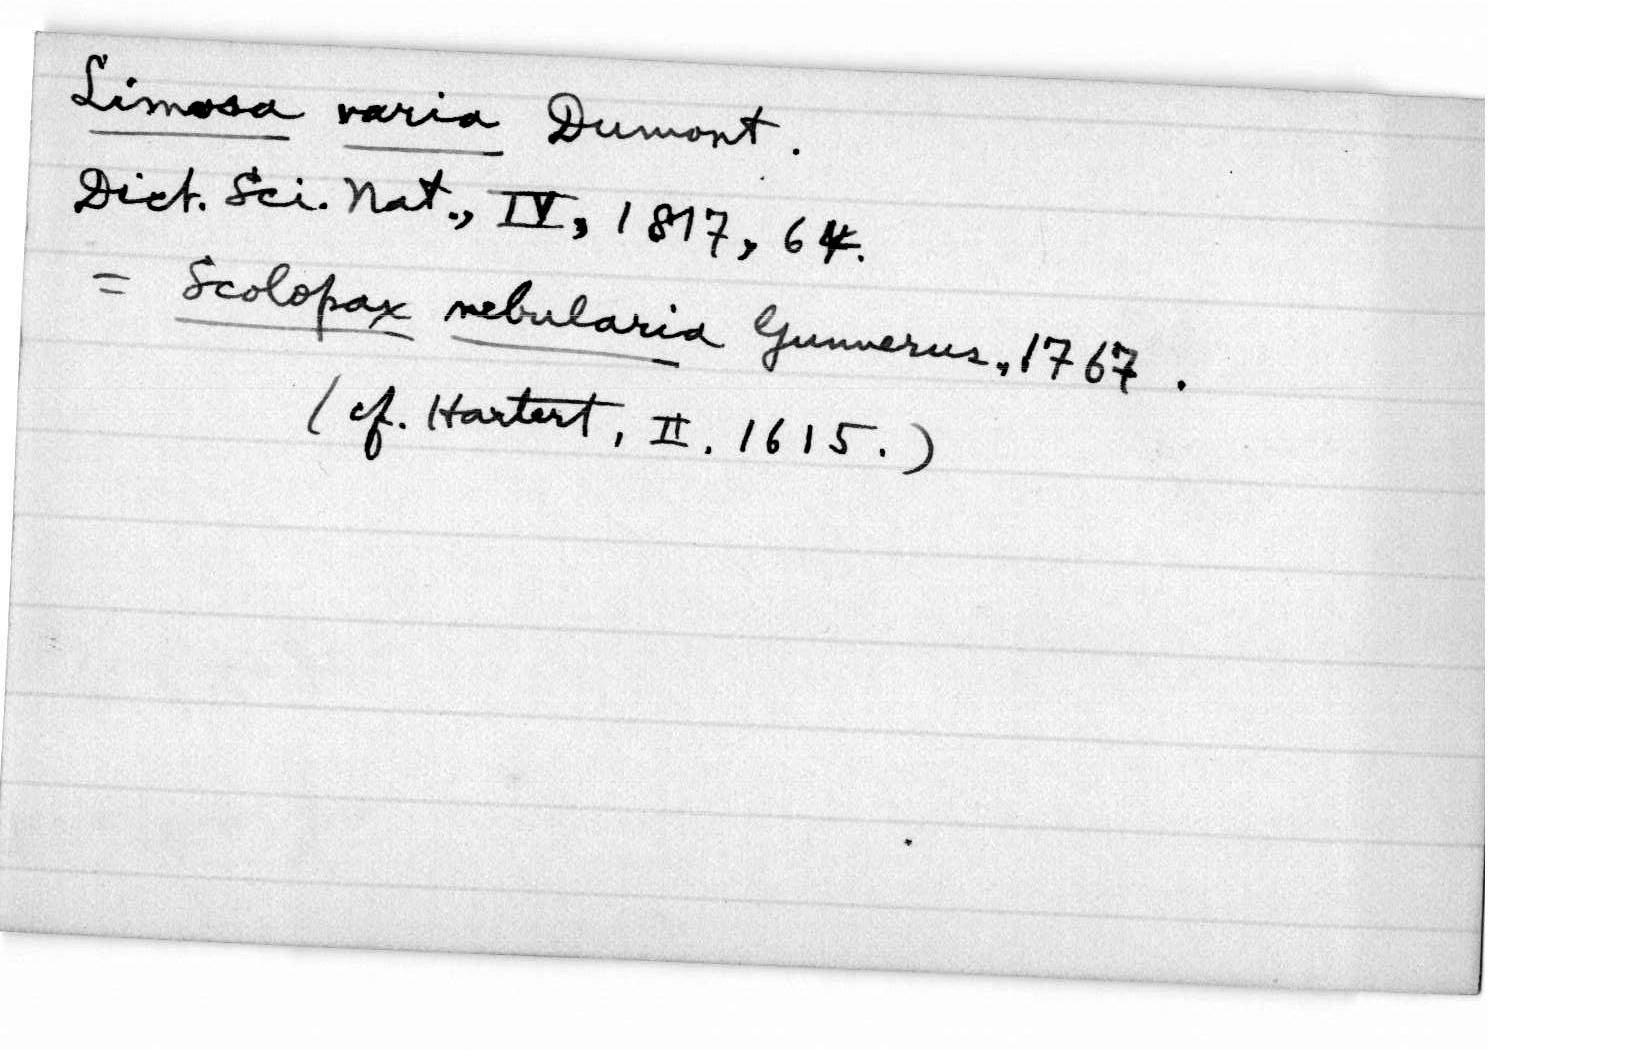 Limosa varia Dumont.
Dict. Sci. Nat., IV, 1817, 64.
= Scolopax nebularia Gunnerus, 1767.
(cf. Hartert, II. 1615.)